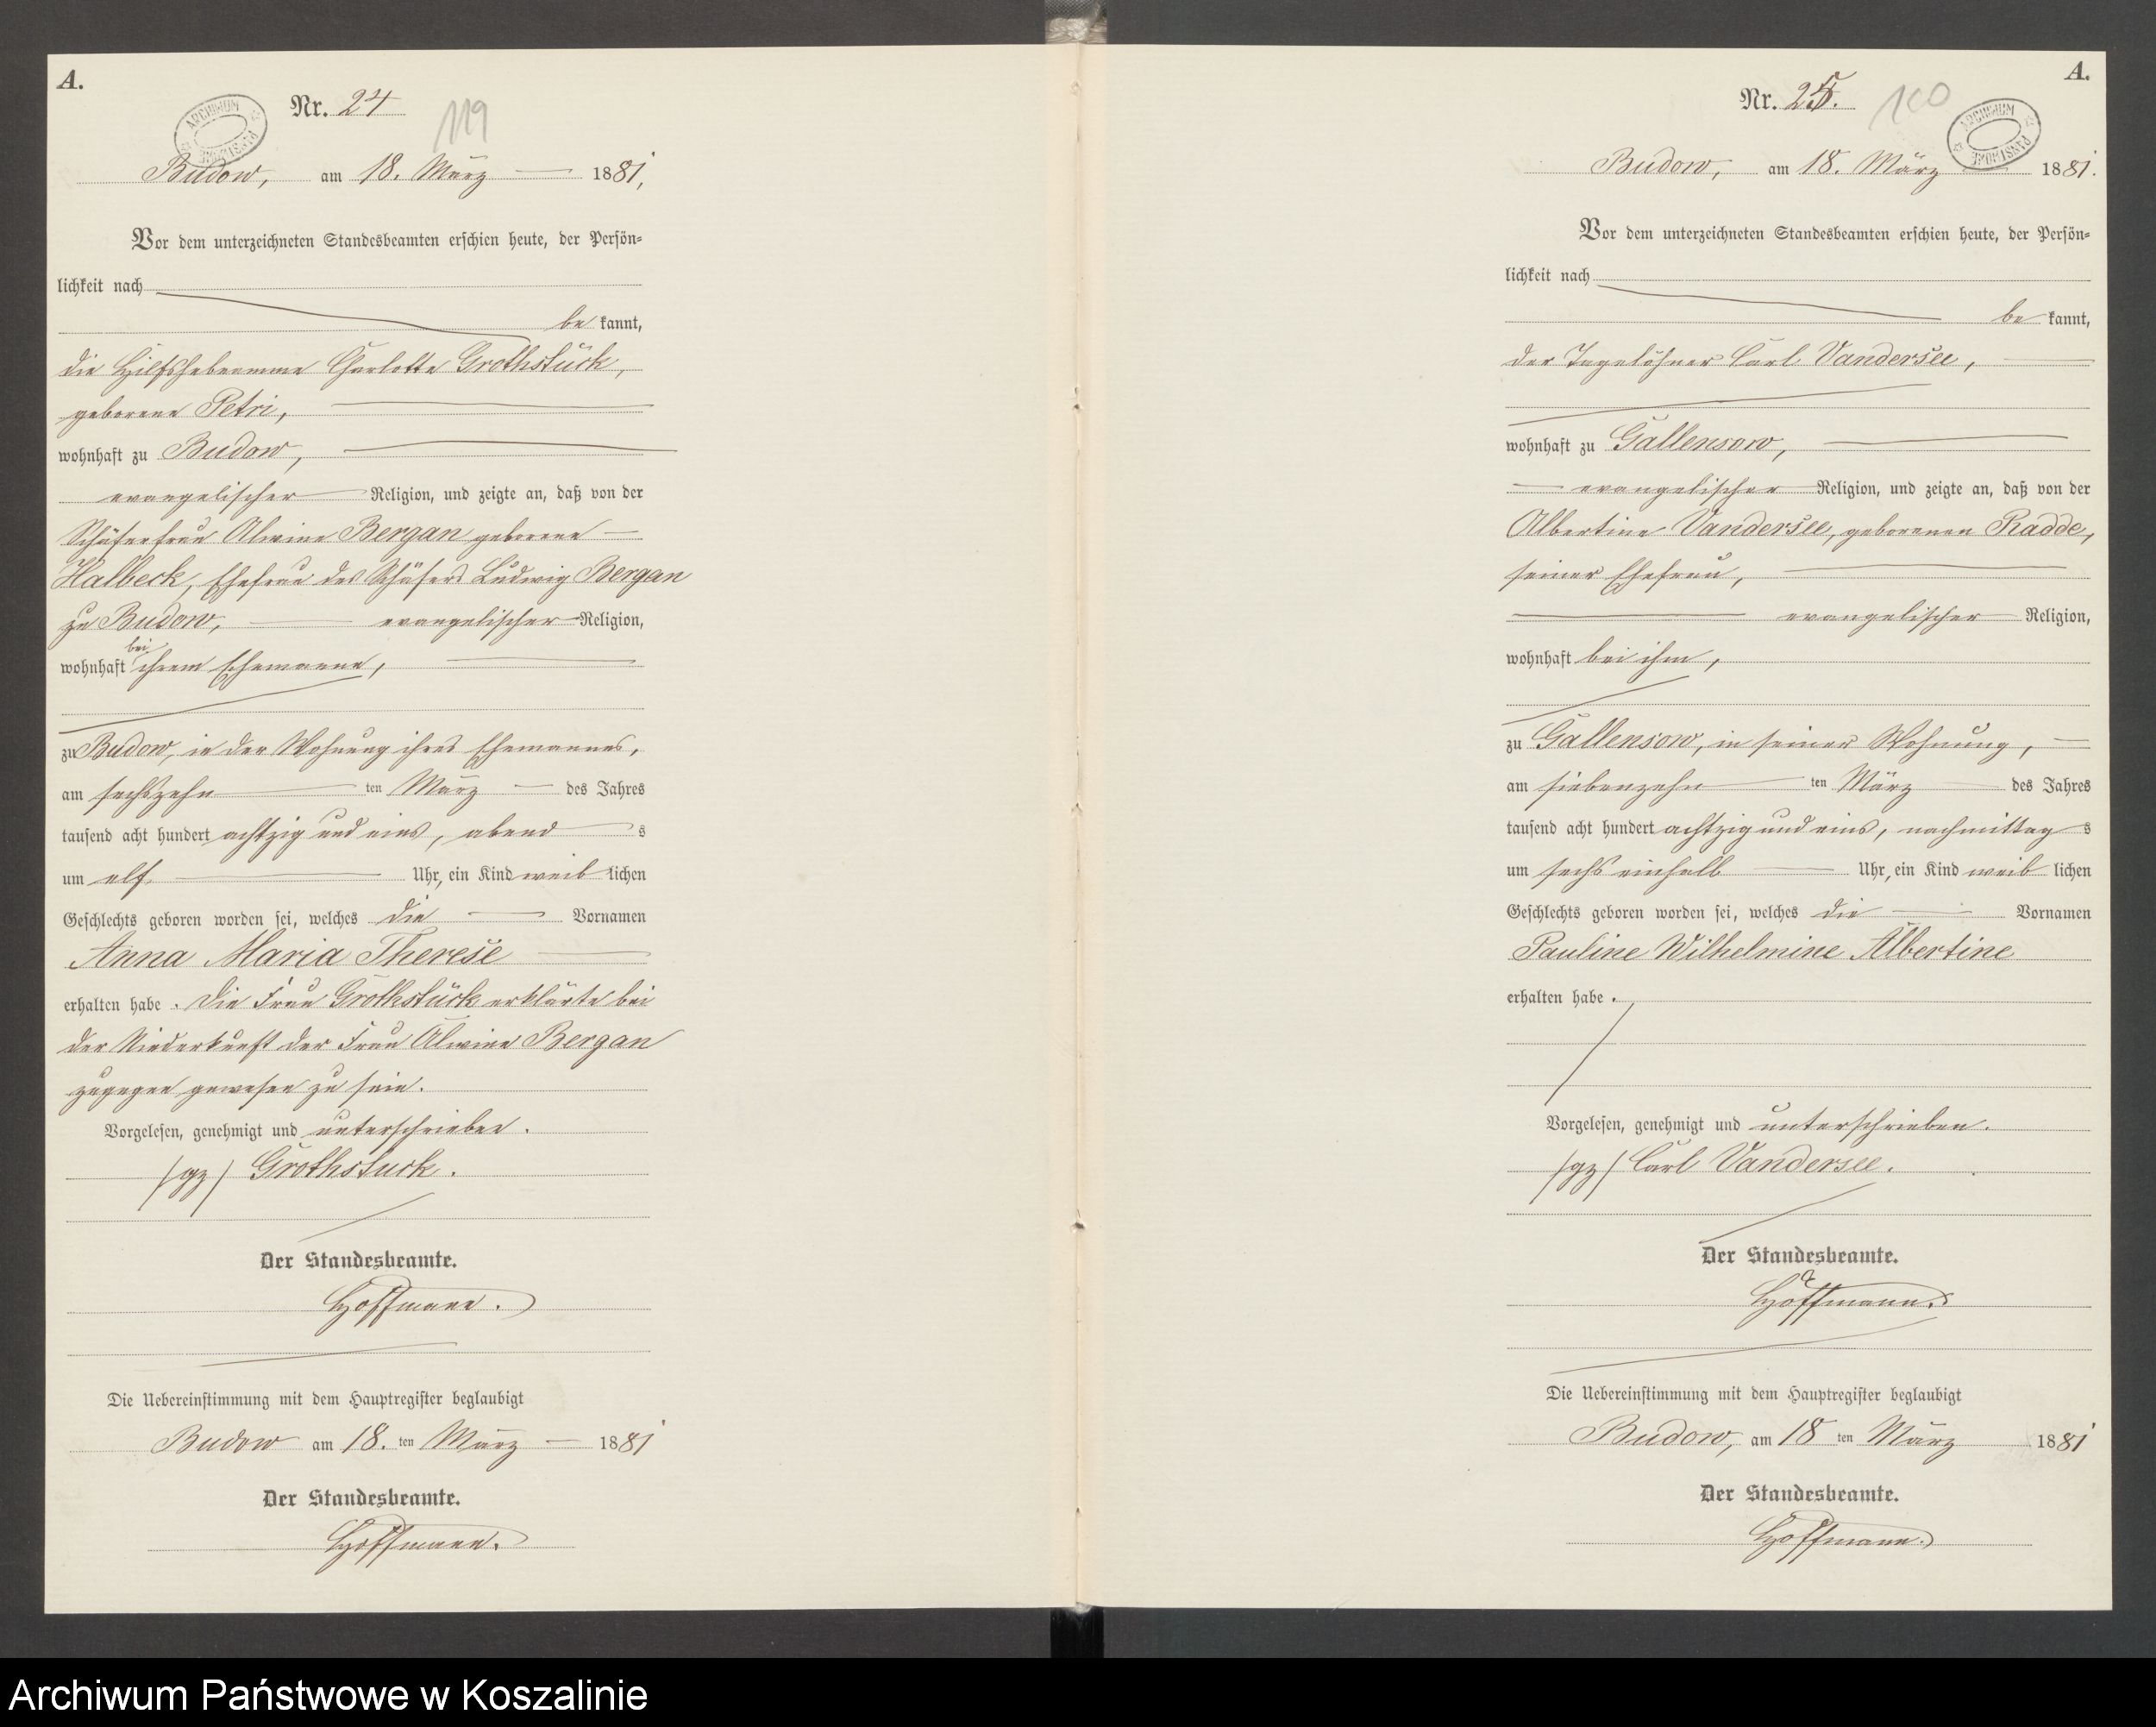 A.
Nr. 24
119
ARCHIWUM PAŃSTWOWE
Budow, am 18. März 1881,
Vor dem unterzeichneten Standesbeamten erschien heute, der Persön-
lichkeit nach
be kannt,
die Hilfshebeamme Charlotte Grothstück,
geborene Petri,
wohnhaft zu Budow,
evangelischer Religion, und zeigte an, daß von der
Schäferfrau Alwine Bergan geborene
Halbeck, Ehefrau des Schäfers Ludwig Bergan
zu Budow, evangelischer Religion,
bei
wohnhaft ihrem Ehemanne,
zu Budow, in der Wohnung ihres Ehemannes,
am sechszehn ten März des Jahres
tausend acht hundert achtzig und eins, abend s
um elf Uhr, ein Kind weib lichen
Geschlechts geboren worden sei, welches die Vornamen
Anna Maria Therese
erhalten habe. Die Frau Grothstück erklärte bei
der Niederkunft der Frau Alwine Bergan
zugegen gewesen zu sein.
Vorgelesen, genehmigt und unterschrieben.
/gz/ Grothstuck.
Der Standesbeamte.
Hoffmann.
Die Uebereinstimmung mit dem Hauptregister beglaubigt
Budow am 18. ten März 1881
Der Standesbeamte.
Hoffmann.
A.
Nr. 25.
100
ARCHIWUM PAŃSTWOWE
Budow, am 18. März 1881.
Vor dem unterzeichneten Standesbeamten erschien heute, der Persön-
lichkeit nach
be kannt,
der Tagelöhner Carl Vandersee,
wohnhaft zu Gallensow,
evangelischer Religion, und zeigte an, daß von der
Albertine Vandersee, geborenen Radde,
seiner Ehefrau,
evangelischer Religion,
wohnhaft bei ihm,
zu Gallensow, in seiner Wohnung,
am siebenzehn ten März des Jahres
tausend acht hundert achtzig und eins, nachmittag s
um sechs einhalb Uhr, ein Kind weib lichen
Geschlechts geboren worden sei, welches die Vornamen
Pauline Wilhelmine Albertine
erhalten habe.
Vorgelesen, genehmigt und unterschrieben.
/gz/ Carl Vandersee.
Der Standesbeamte.
Hoffmann.
Die Uebereinstimmung mit dem Hauptregister beglaubigt
Budow, am 18 ten März 1881
Der Standesbeamte.
Hoffmann.
Archiwum Państwowe w Koszalinie